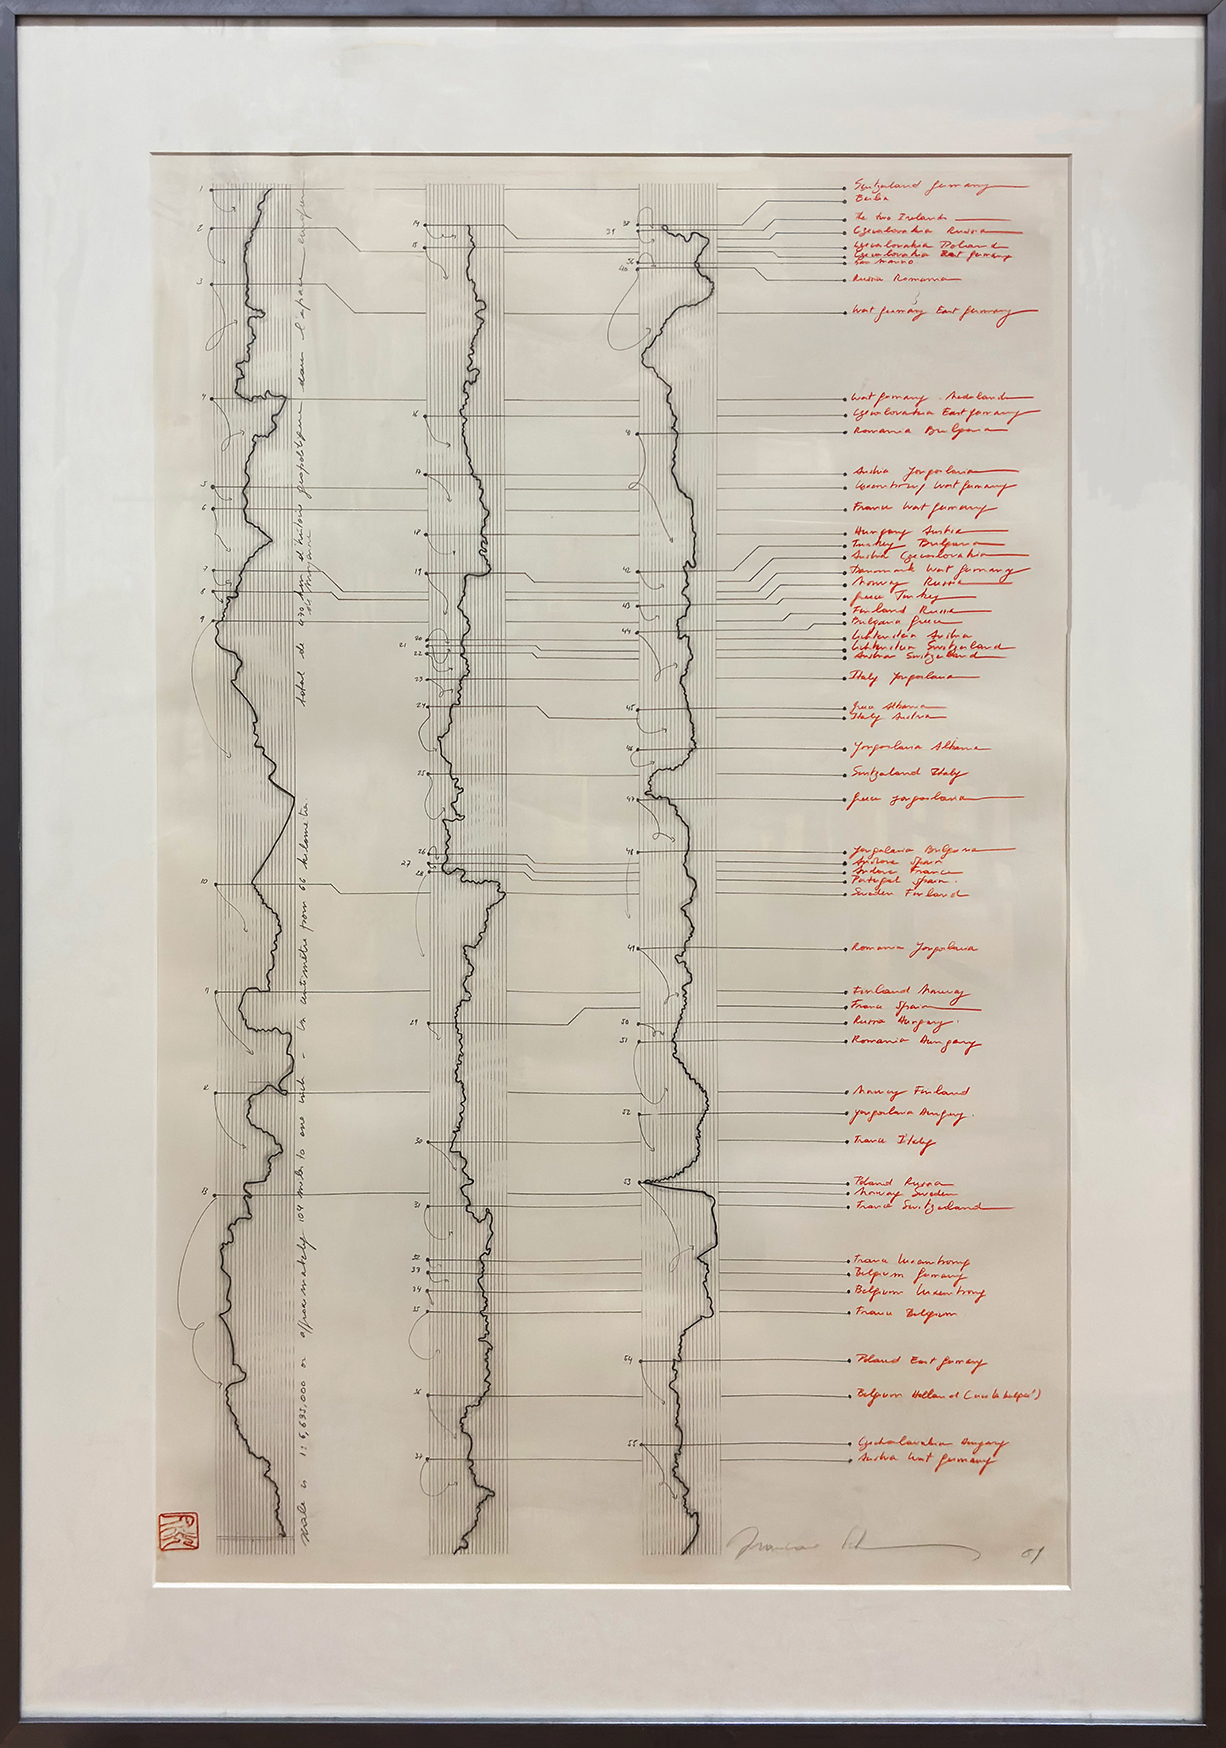 Switzerland Germany
Berlin
The two Irelands
Czecoslovakia Russia
Czecoslovakia Poland
Czecoslovakia East Germany
San Marino
Russia Romania
West Germany East Germany
West Germany Nederland
Czecoslovakia East Germany
Romania Bulgaria
Austria Yougoslavia
Luxembourg West Germany
France West Germany
Hungary Austria
Turkey Bulgaria
Austria Czecoslovakia
Danmark West Germany
Norway Russia
Greece Turkey
Finland Russia
Bulgaria Greece
Lichtenstein Austria
Lichtenstein Switzerland
Austria Switzerland
Italy Yougoslavia
Greece Albania
Italy Austria
Yougoslavia Albania
Switzerland Italy
Greece Yougoslavia
Yougoslavia Bulgaria
Andorra Spain
Andorra France
Portugal Spain
Sweden Finland
Romania Yougoslavia
Finland Norway
France Spain
Russia Hungary
Romania Hungary
Norway Finland
Yougoslavia Hungary
France Italy
Poland Russia
Norway Sweden
France Switzerland
France Luxembourg
Belgium Germany
Belgium Luxembourg
France Belgium
Poland East Germany
Belgium Holland
Czechoslovakia Hungary
Austria West Germany
1
2
3
4
5
6
7
8
9
10
11
12
13
14
15
16
17
18
19
20
21
22
23
24
25
26
27
28
29
30
31
32
33
34
35
36
37
38
39
40
41
42
43
44
45
46
47
48
49
50
51
52
53
54
55
scale is 1:6,633,000 or approximately 104 miles to one inch - un centimètre from 66 kilometer
total de 490 km d'histoire geopolitique dans l'espace